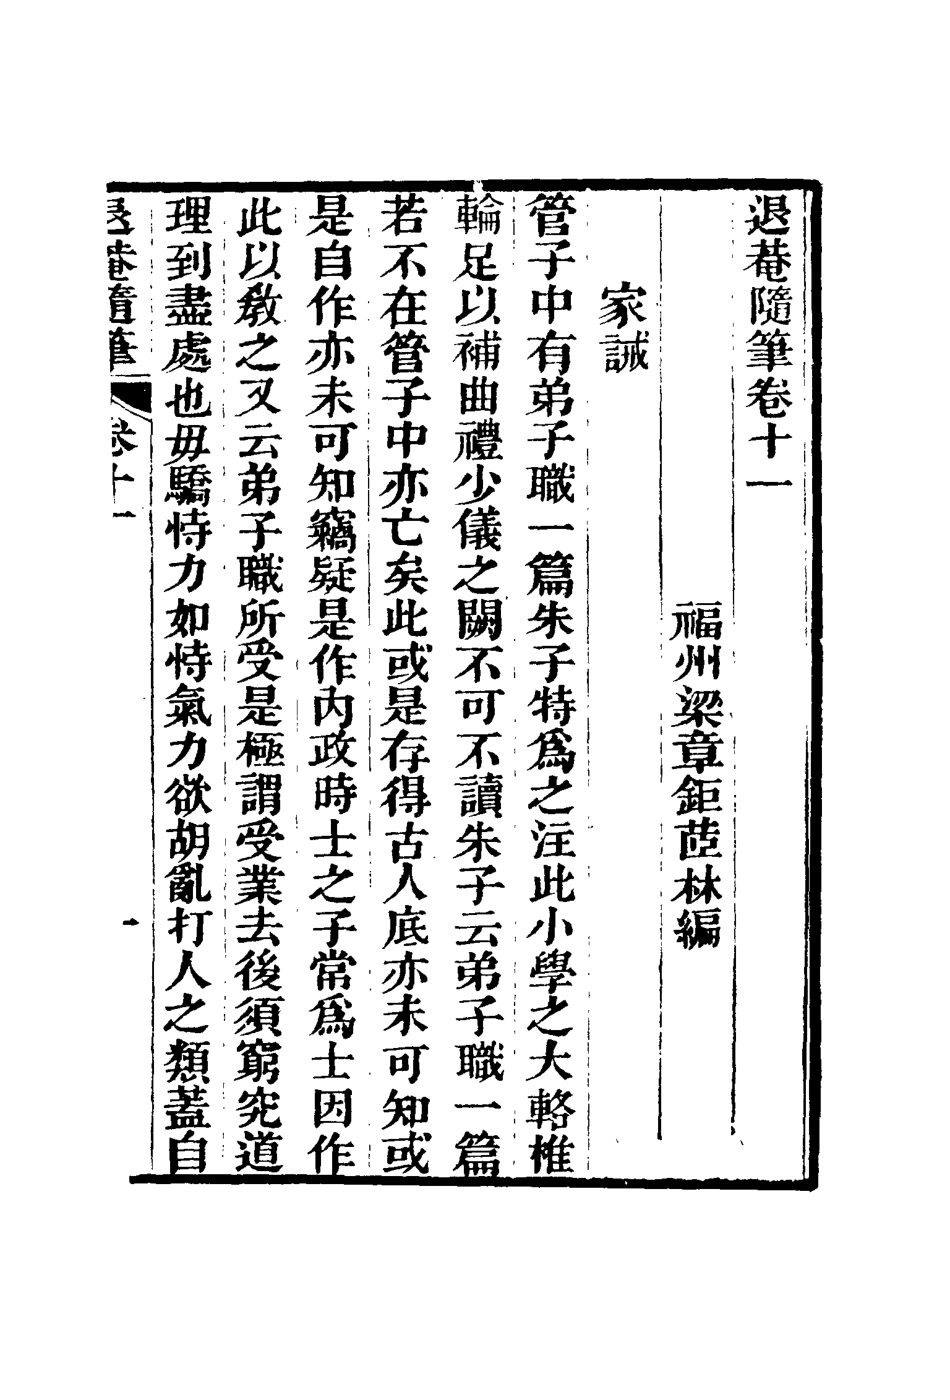 退菴隨筆卷十一
福州梁章鉅茝林編
家誡
管子中有弟子職一篇朱子特爲之注此小學之大輅椎
輪足以補曲禮少儀之闕不可不讀朱子云弟子職一篇
若不在管子中亦亡矣此或是存得古人底亦未可知或
是自作亦未可知竊疑是作内政時士之子常爲士因作
此以教之又云弟子職所受是極謂受業去後須窮究道
理到盡處也毋驕恃力如恃氣力欲胡亂打人之類蓋自
退菴隨筆 卷十一 一